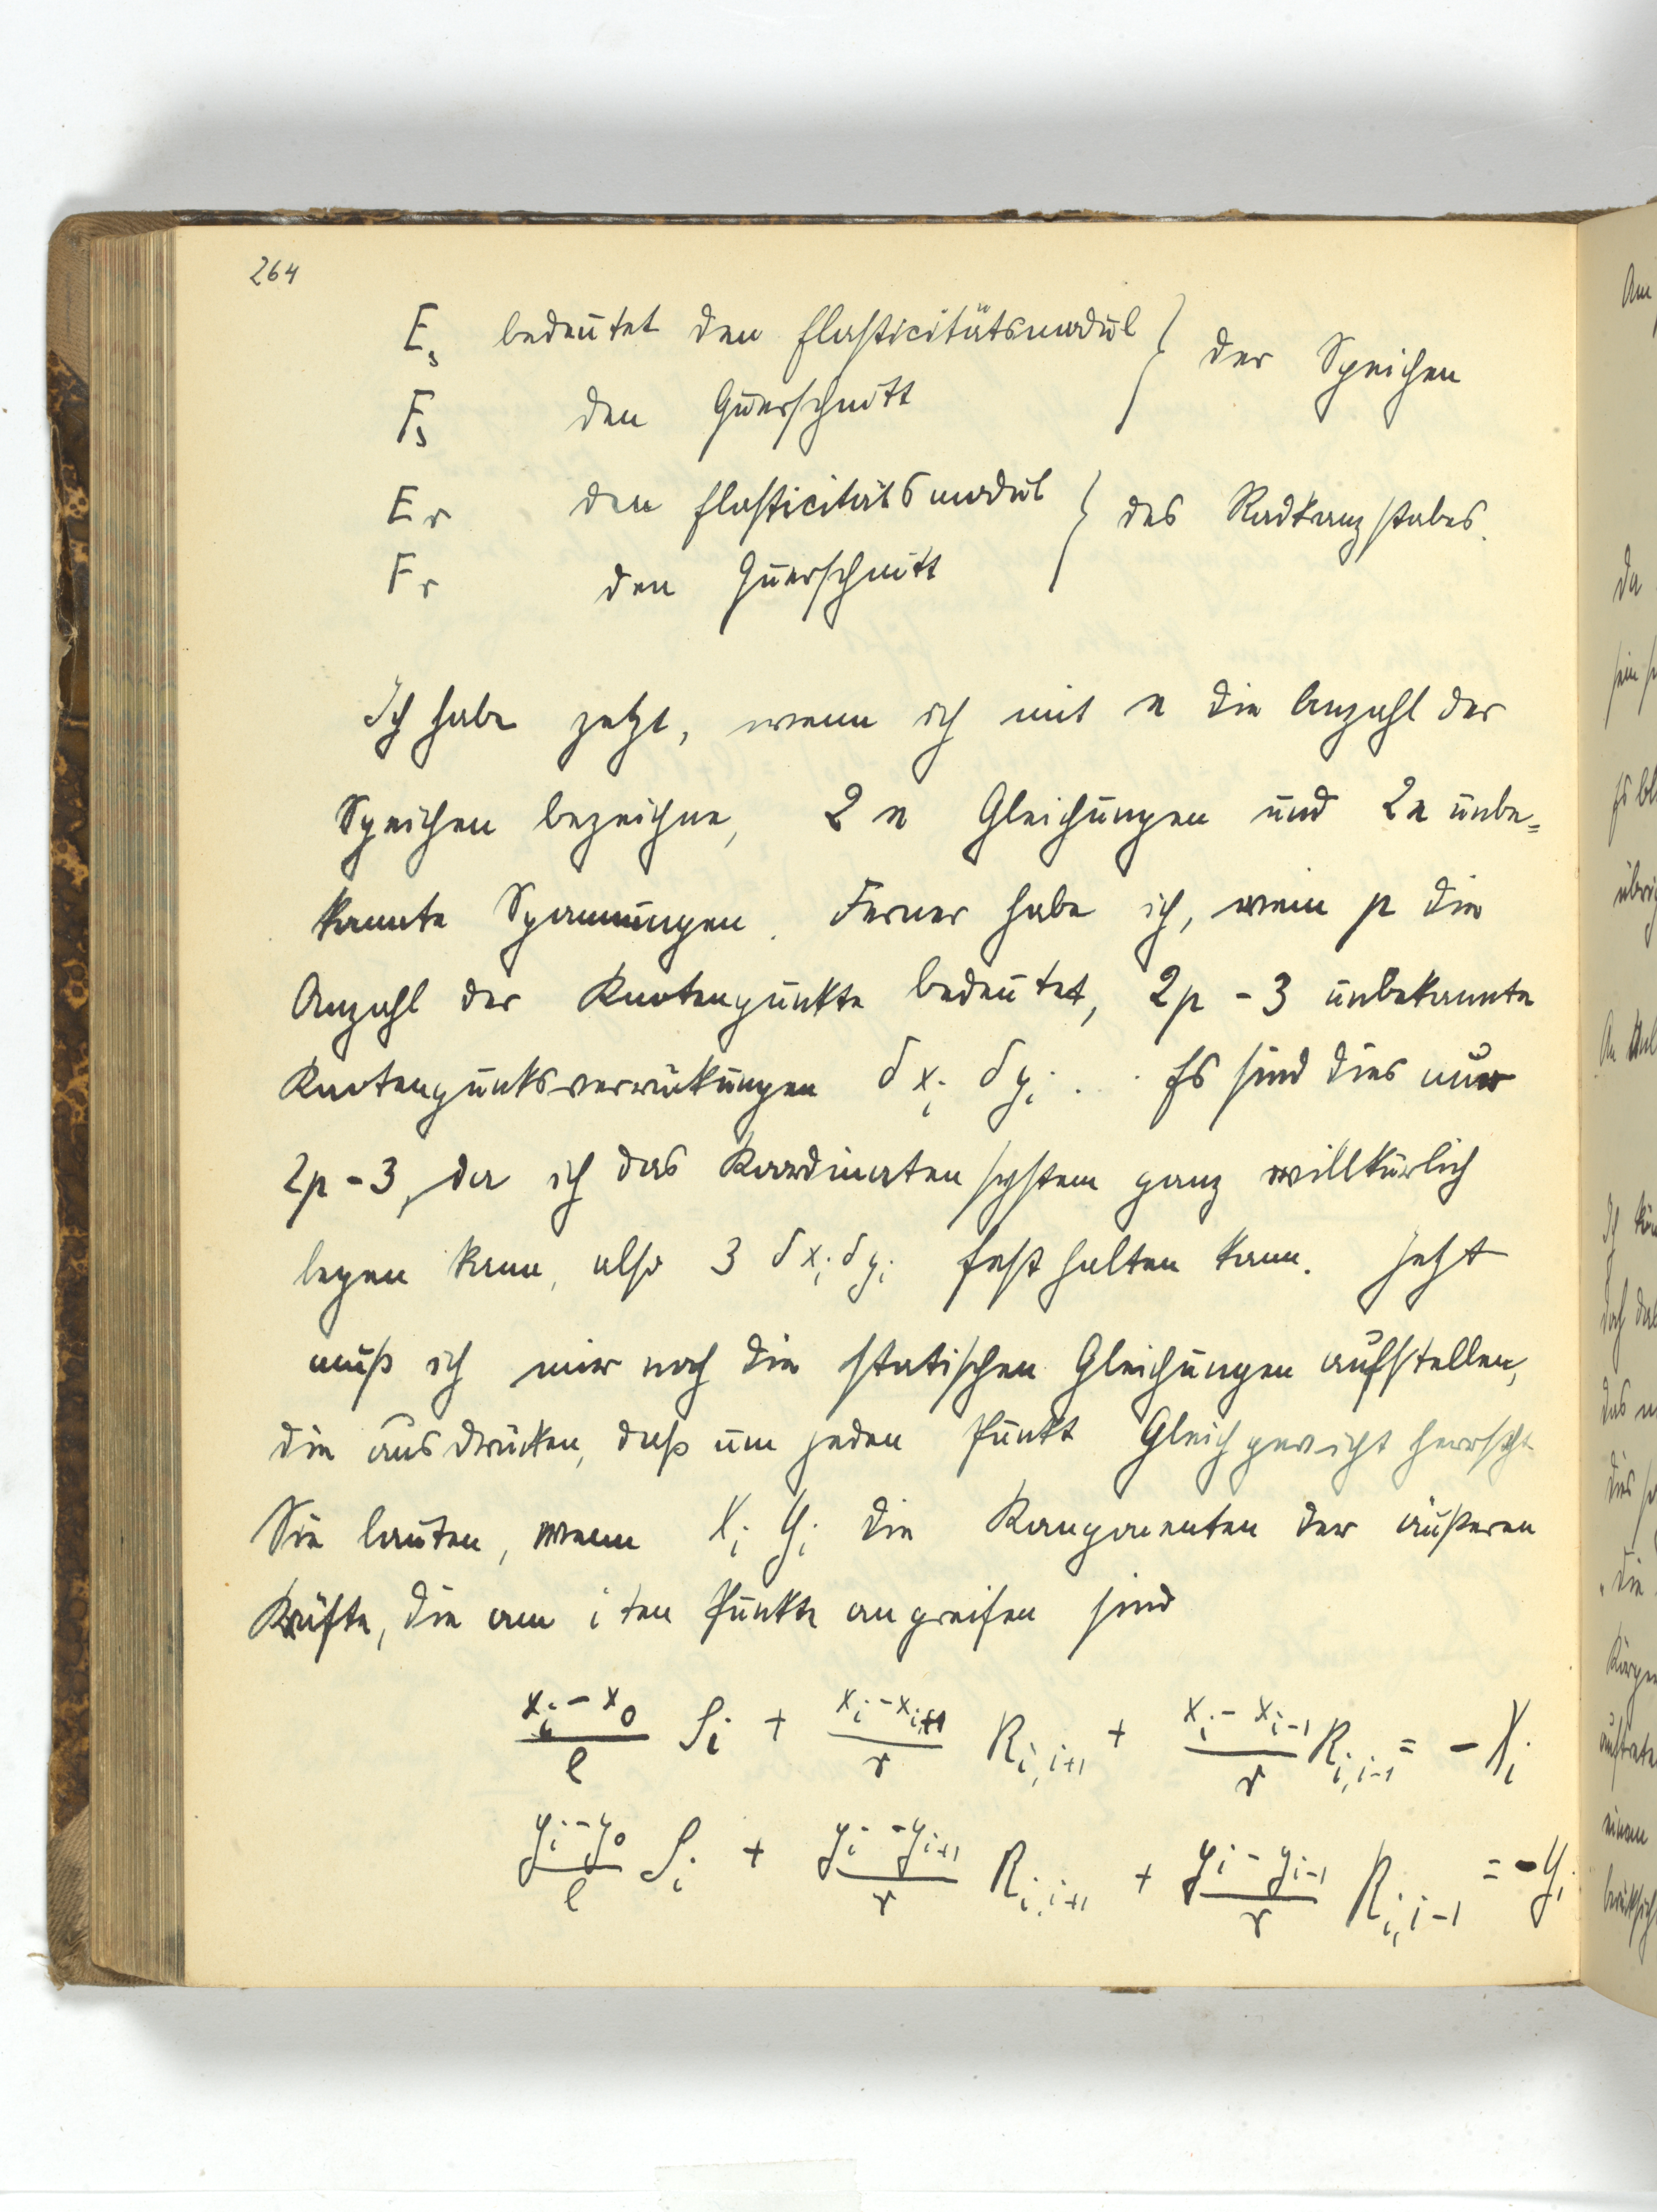 264
E_s bedeutet den Elasticitätsmodul } der Speichen
F_s den Querschnitt
E_r den Elasticitätsmodul } des Radkranzstabes.
F_r den Querschnitt
Ich habe jetzt, wenn ich mit n die Anzahl der
Speichen bezeichne, 2n Gleichungen und 2n unbe=
kannte Spannungen. Ferner habe ich, wenn p die
Anzahl der Knotenpunkte bedeutet, 2p - 3 unbekannte
Knotenpunktsverrückungen δx_i δy_i . . Es sind dies nur
2p - 3, da ich das Koordinatensystem ganz willkürlich
legen kann, also 3 δx_i δy_i fest halten kann. Jetzt
muß ich mir noch die statischen Gleichungen aufstellen,
die ausdrücken, daß um jeden Punkt Gleichgewicht herrscht
Sie lauten, wenn X_i Y_i die Komponenten der äußeren
Kräfte, die am i ten Punkte angreifen sind
(x_i - x_0)/l S_i + (x_i - x_{i+1})/r R_{i,i+1} + (x_i - x_{i-1})/r R_{i,i-1} = - X_i
(y_i - y_0)/l S_i + (y_i - y_{i+1})/r R_{i,i+1} + (y_i - y_{i-1})/r R_{i,i-1} = - Y_i